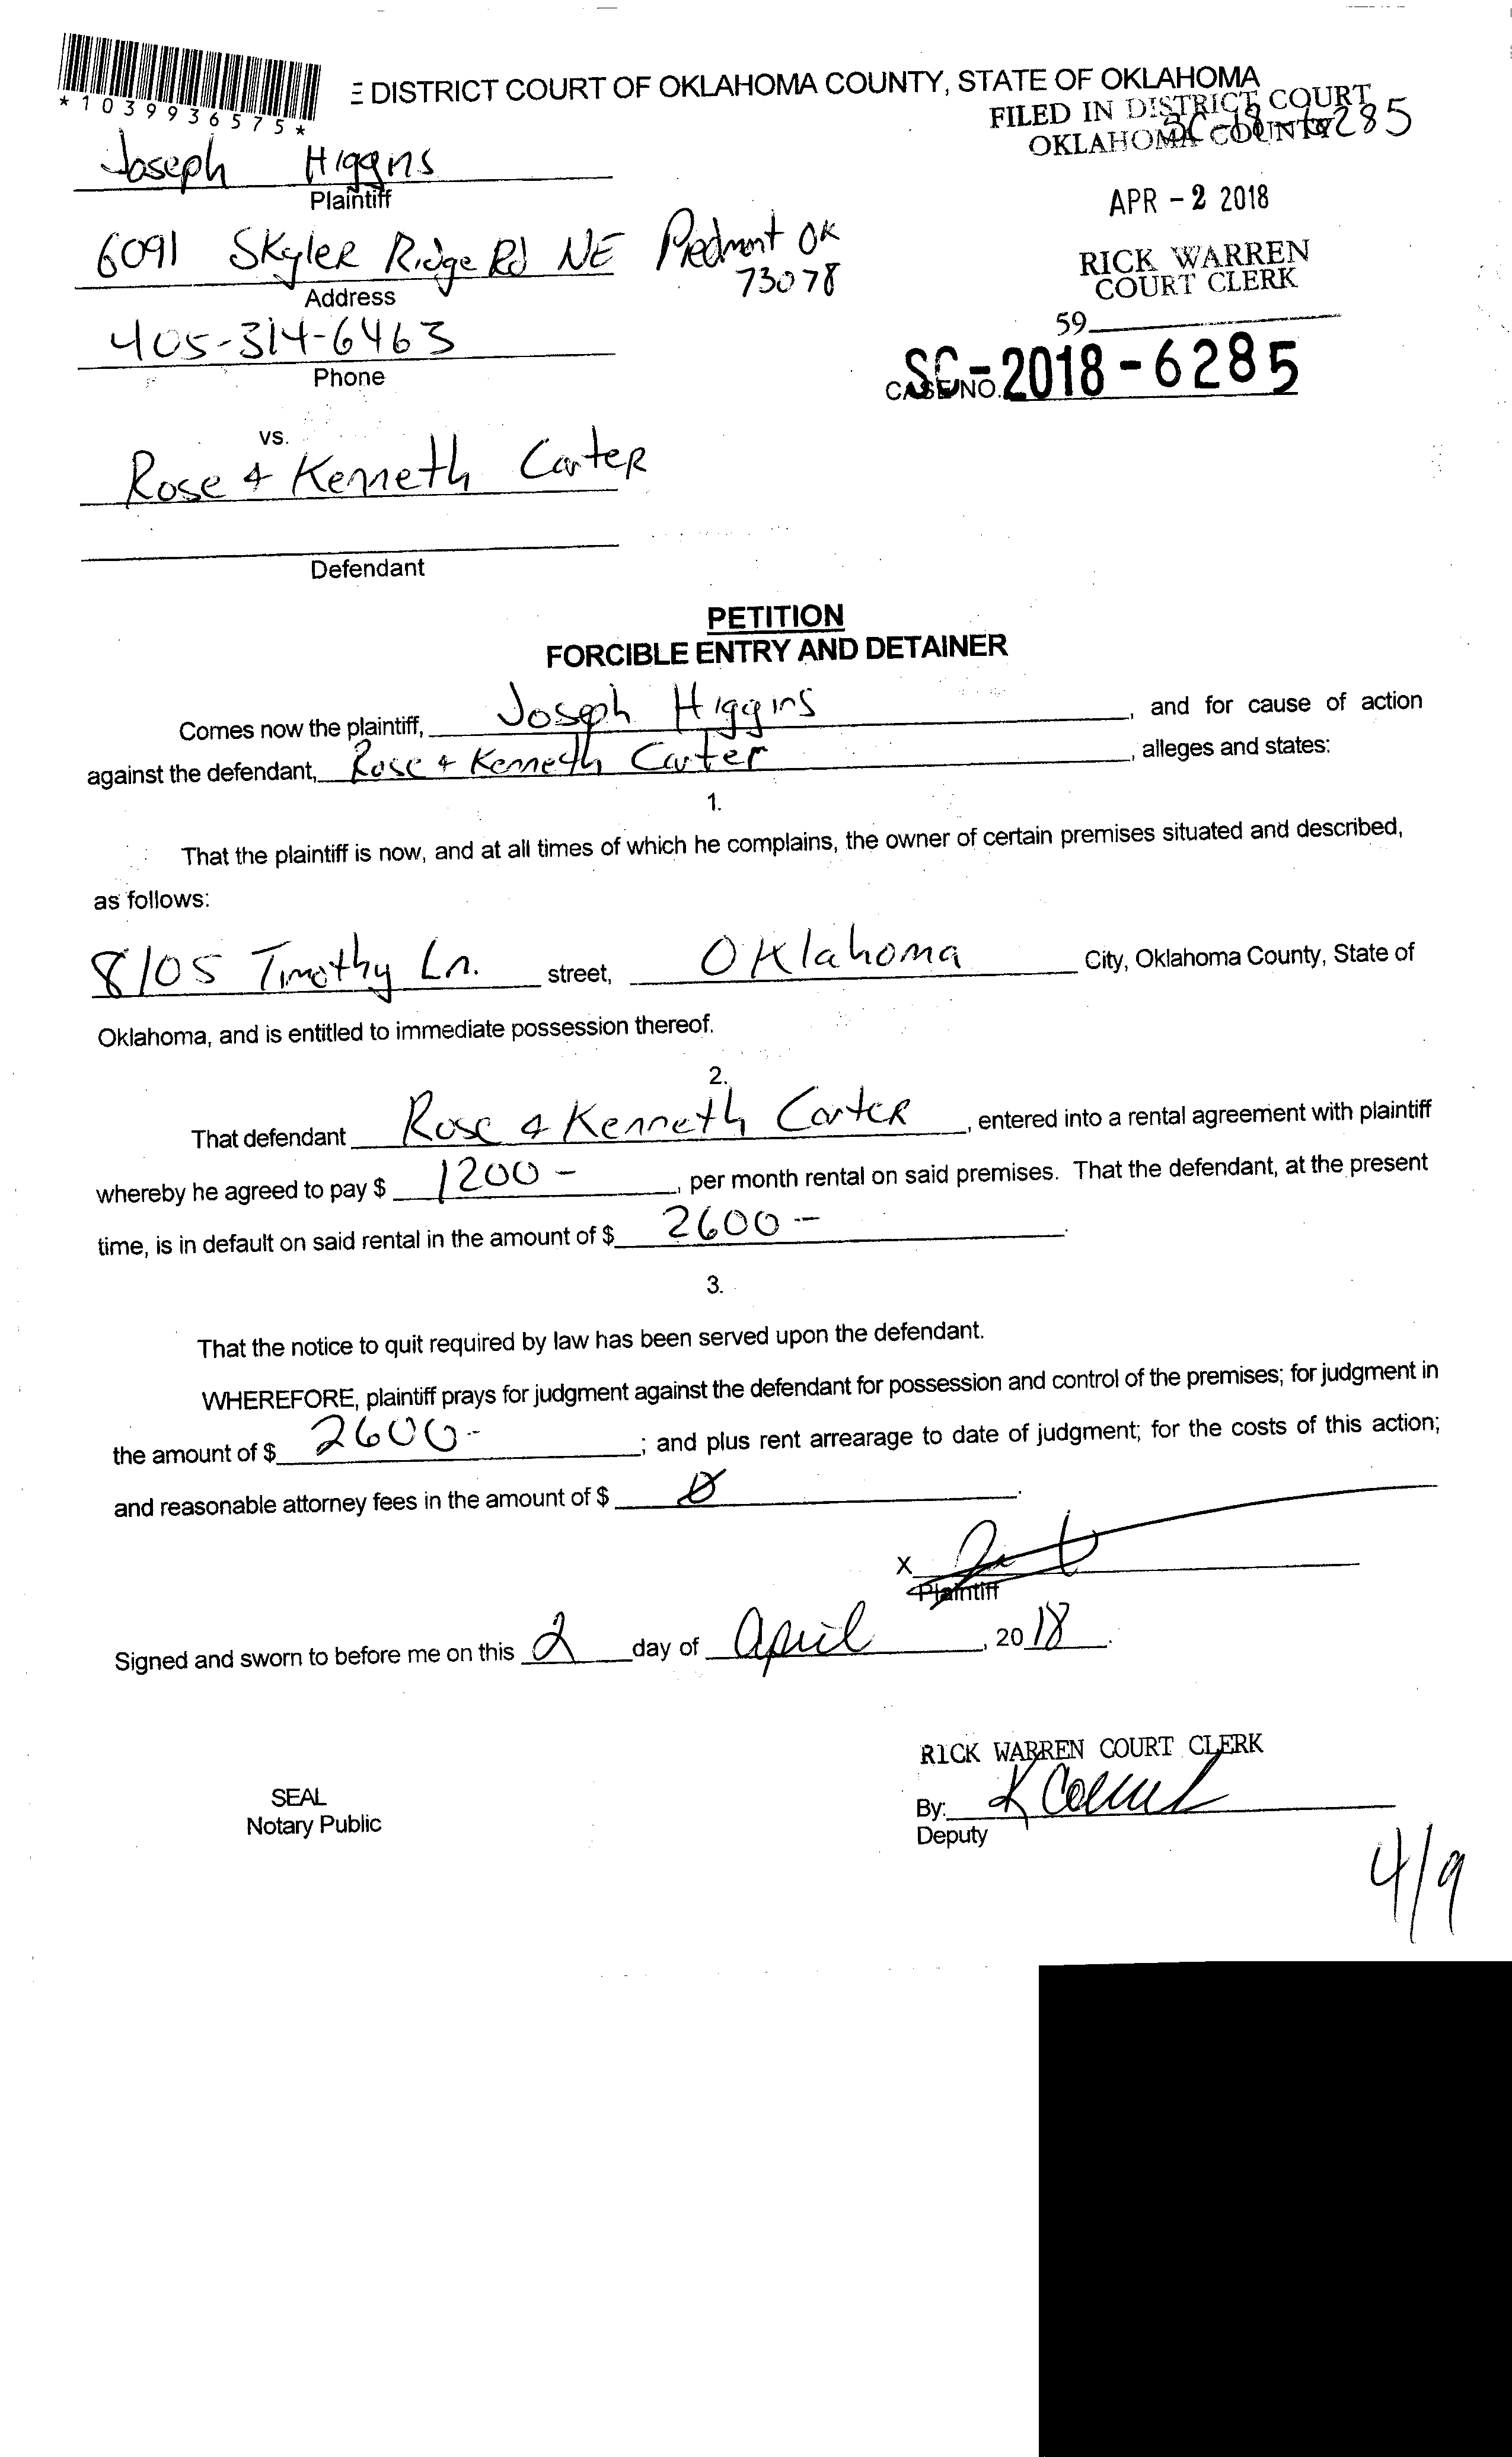 *1039936575*
E DISTRICT COURT OF OKLAHOMA COUNTY, STATE OF OKLAHOMA
FILED IN DISTRICT COURT
OKLAHOMA COUNTY
SC-18-6285
Joseph Higgins
Plaintiff
APR - 2 2018
6091 Skyler Ridge Rd NE Piedmont OK
73078
Address
RICK WARREN
COURT CLERK
59
405-314-6463
Phone
CASE NO. SC-2018-6285
vs.
Rose & Kenneth Carter
Defendant
PETITION
FORCIBLE ENTRY AND DETAINER
Comes now the plaintiff, Joseph Higgins, and for cause of action
against the defendant, Rose & Kenneth Carter, alleges and states:
1.
That the plaintiff is now, and at all times of which he complains, the owner of certain premises situated and described,
as follows:
8105 Timothy Ln. street, Oklahoma City, Oklahoma County, State of
Oklahoma, and is entitled to immediate possession thereof.
2.
That defendant Rose & Kenneth Carter, entered into a rental agreement with plaintiff
whereby he agreed to pay $ 1200 -, per month rental on said premises. That the defendant, at the present
time, is in default on said rental in the amount of $ 2600 -.
3.
That the notice to quit required by law has been served upon the defendant.
WHEREFORE, plaintiff prays for judgment against the defendant for possession and control of the premises; for judgment in
the amount of $ 2600-; and plus rent arrearage to date of judgment; for the costs of this action;
and reasonable attorney fees in the amount of $ 0.
X
Plaintiff
Signed and sworn to before me on this 2 day of April, 2018.
RICK WARREN COURT CLERK
SEAL
Notary Public
By:
Deputy
4/9